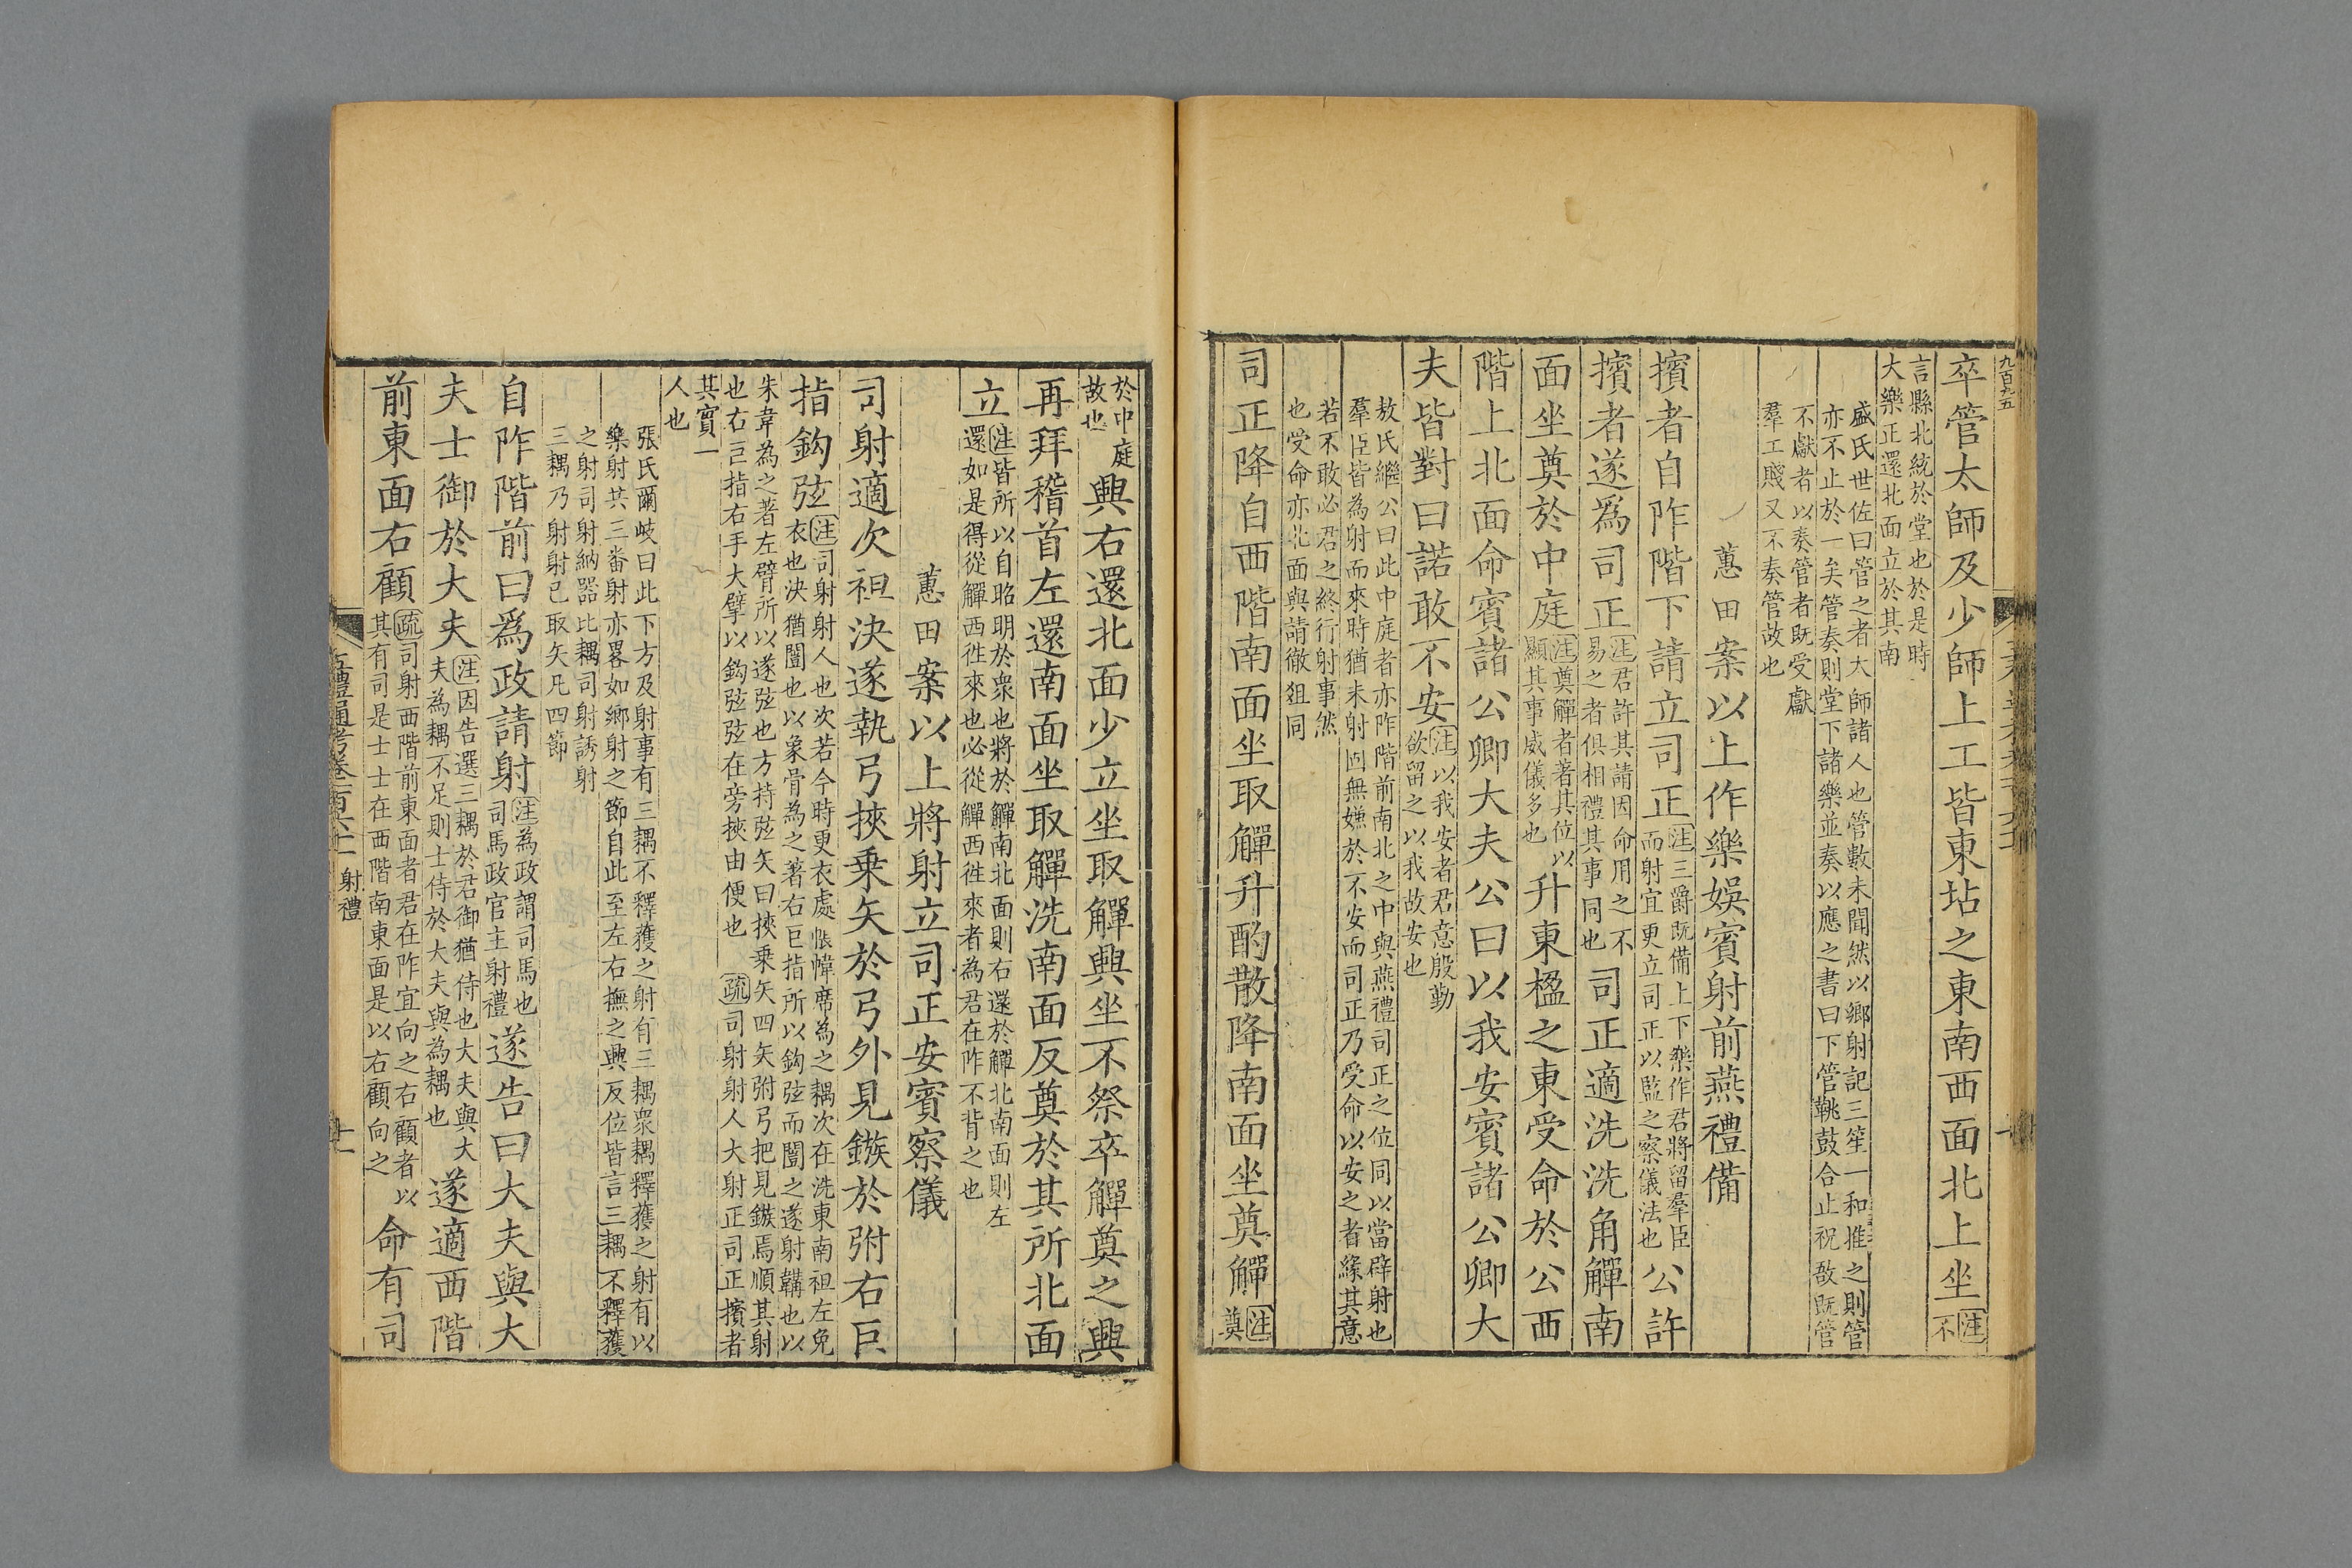 九百九五
卒管太師及少師上工皆東坫之東南西面北上坐注不
言縣北統於堂也於是時
大樂正還北面立於其南
盛氏世佐曰管之者大師諸人也管數未聞然以鄉射記三笙一和推之則管
亦不止於一矣管奏則堂下諸樂並奏以應之書曰下管鞉鼓合止柷敔既管
不獻者以奏管者既受獻
羣工賤又不奏管故也
蕙田案以上作樂娛賓射前燕禮備
擯者自阼階下請立司正注三爵既備上下樂作君將留羣臣而射宜更立司正以監之察儀法也公許
擯者遂爲司正注君許其請因命用之不易之者俱相禮其事同也司正適洗洗角觶南
面坐奠於中庭注奠觶者著其位以顯其事威儀多也升東楹之東受命於公西
階上北面命賓諸公卿大夫公曰以我安賓諸公卿大
夫皆對曰諾敢不安注以我安者君意殷勤欲留之以我故安也
敖氏繼公曰此中庭者亦阼階前南北之中與燕禮司正之位同以當辟射也
羣臣皆為射而來時猶未射固無嫌於不安而司正乃受命以安之者緣其意
若不敢必君之終行射事然
也受命亦北面與請徹俎同
司正降自西階南面坐取觶升酌散降南面坐奠觶注奠
於中庭
故也興右還北面少立坐取觶興坐不祭卒觶奠之興
再拜稽首左還南面坐取觶洗南面反奠於其所北面
立注皆所以自昭明於衆也將於觶南北面則右還於觶北南面則左還如是得從觶西徃來也必從觶西徃來者為君在阼不背之也
蕙田案以上將射立司正安賓察儀
司射適次袒決遂執弓挾乗矢於弓外見鏃於弣右巨
指鈎弦注司射射人也次若今時更衣處帳幃席為之耦次在洗東南袒左免衣也決猶闓也以象骨為之著右巨指所以鈎弦而闓之遂射韝也以
朱韋為之著左臂所以遂弦也方持弦矢曰挾乗矢四矢弣弓把見鏃焉順其射
也右巨指右手大擘以鈎弦弦在旁挾由便也 疏司射射人大射正司正擯者
其實一
人也
張氏爾岐曰此下方及射事有三耦不釋獲之射有三耦衆耦釋獲之射有以
樂射共三番射亦畧如鄉射之節自此至左右撫之興反位皆言三耦不釋獲
之射司射納器比耦司射誘射
三耦乃射射已取矢凡四節
自阼階前曰爲政請射注為政謂司馬也司馬政官主射禮遂告曰大夫與大
夫士御於大夫注因告選三耦於君御猶侍也大夫與大夫為耦不足則士侍於大夫與為耦也遂適西階
前東面右顧疏司射西階前東面者君在阼宜向之右顧者以其有司是士士在西階南東面是以右顧向之命有司
五禮通考卷一百六十二 射禮
十一